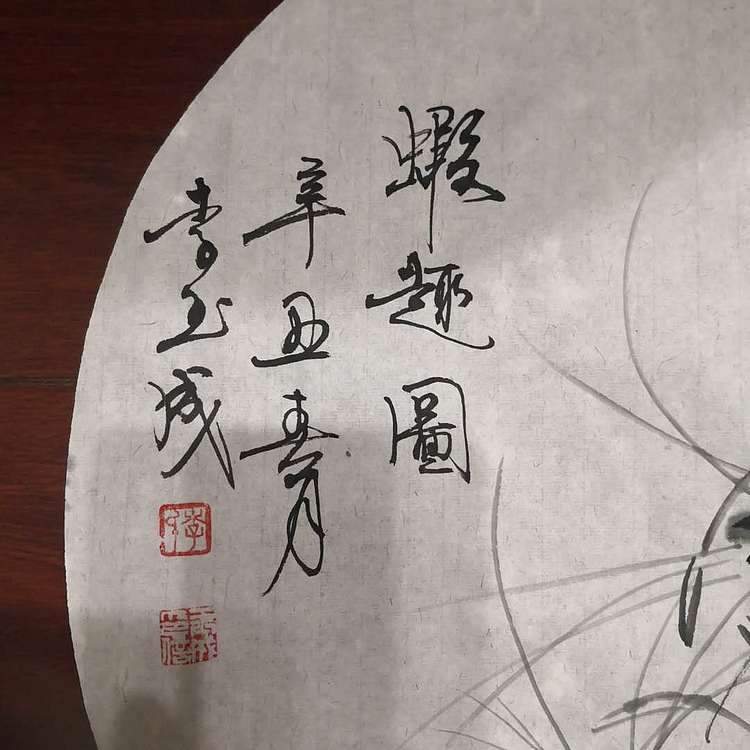 蝦趣圖
辛丑春月
李玉成